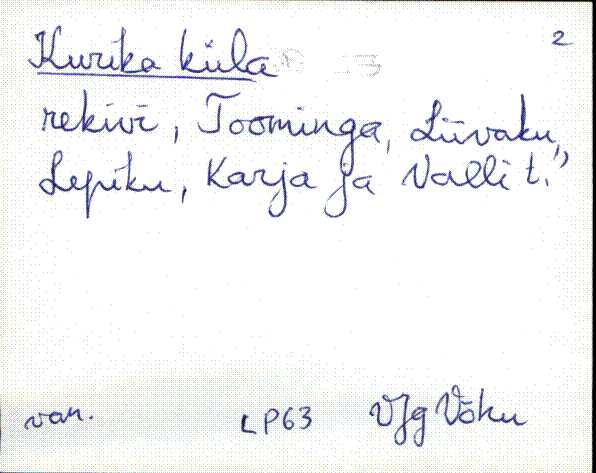 2
Kurika küla
rekivi, Toominga, Liivaku,
Lepiku, Karja ja Valli t."
van. LP63 VJg Võku